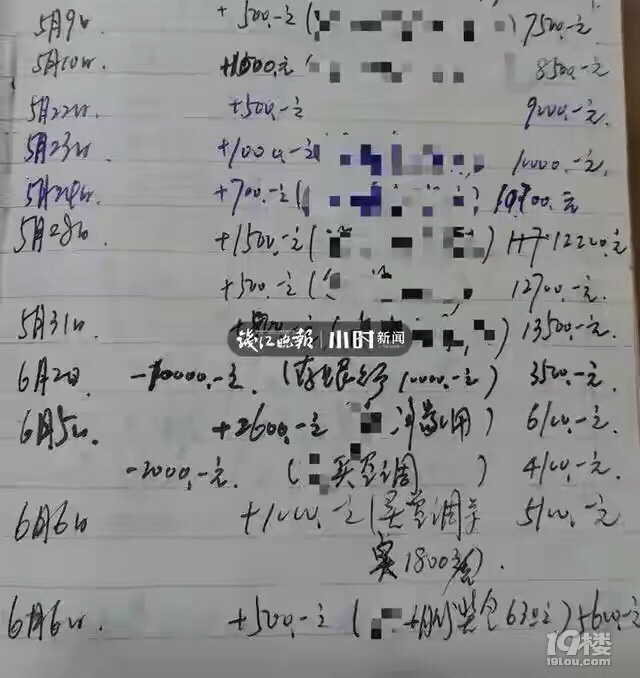 5月9日. +500.-元( 7500.-元
5月10日. +1000.元( 8500.-元
5月22日. +500.-元 9000.-元.
5月23日. +1000.-元 10000.-元.
5月24日. +700.-元( ) 10700.元
5月28日. +1500.-元( ) 117 12200.元
+500.-元( 12700.-元.
5月31日. 元( ) 13500.-元.
钱江晚报 小时新闻
6月2日. -10000.-元. (存银行10000.-元) 3500.-元.
6月5日. +2600.-元 用) 6100.-元.
-2000.-元. ( 买空调 ) 4100.-元.
6月6日 +1000.-元(买空调 5100.-元
实1800元).
6月6日. +500.-元( 630元) +600.-元
19楼
19lou.com